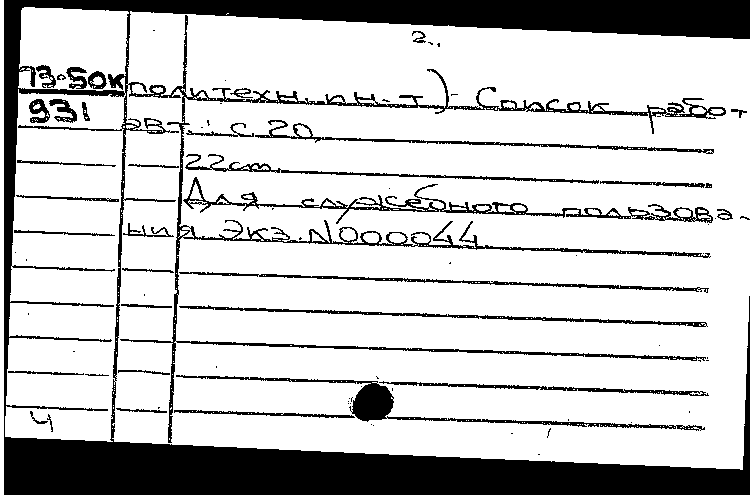 2.
73-50к политехн. ин-т) - Список работ
931 авт.: с. 20
22 cm.
Для служебного пользова-
ния Экз. N000044
Ч